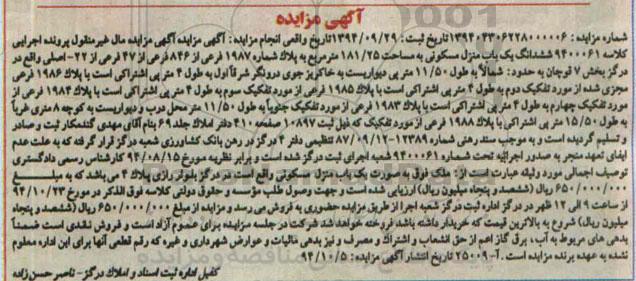 آگهی مزایده
شماره مزایده : ۱۳۹۴۰۴۳۰۶۲۲۸۰۰۰۰۰۶ تاریخ ثبت: ۱۳۹۴/۰۹/۲۹ تاریخ واقعی انجام مزایده : آگهی مزایده آگهی مزایده مال غیرمنقول پرونده اجرایی
کلاسه ۹۴۰۰۰۶۱ ششدانگ یک باب منزل مسکونی به مساحت ۱۸۱/۲۵ مترمربع به پلاک شماره ۱۹۸۷ فرعی از ۸۴۶ فرعی از ۴۷ فرعی از ۲۲- اصلی واقع در
درگز بخش ۷ قوچان به حدود: شمالاً به طول ۱۱/۵۰ متر پی دیواریست به خاکریز جوی درونگر شرقاً اول به طول ۴ متر پی اشتراکی است با پلاک ۱۹۸۶ فرعی
مجزی شده از مورد تفکیک دوم به طول ۴ متر پی اشتراکی است با پلاک ۱۹۸۵ فرعی از مورد تفکیک سوم به طول ۴ متر پی اشتراکی است با پلاک ۱۹۸۴ فرعی از
مورد تفکیک چهارم به طول ۴ متر پی اشتراکی است با پلاک ۱۹۸۳ فرعی از مورد تفکیک جنوباً به طول ۱۱/۵۰ متر محل درب و دیواریست به کوچه ۸ متری غرباً
به طول ۱۵/۵۰ متر پی اشتراکی است با پلاک ۱۹۸۸ فرعی از مورد تفکیک که ذیل ثبت ۱۰۸۹۷ صفحه ۴۱۰ دفتر املاک جلد ۶۹ بنام آقای مهدی گندمکار ثبت و صادر
و تسلیم گردیده است و به موجب سند رهنی شماره ۱۲۳۸۹-۸۷/۰۹/۱۲ تنظیمی دفتر ۴ درگز در رهن بانک کشاورزی شعبه درگز قرار گرفته که به علت عدم
ایفای تعهد منجر به صدور اجرائیه تحت شماره ۹۴۰۰۰۶۱ شعبه اجرای ثبت درگز شده است و برابر نظریه مورخ ۹۴/۰۸/۱۵ کارشناس رسمی دادگستری
توصیف اجمالی مورد وثیقه عبارت است از : ملک فوق به صورت یک باب منزل مسکونی واقع است در درگز بلوار رازی پلاک ۴ می باشد که به مبلغ
۶۵۰/۰۰۰/۰۰۰ ریال (ششصد و پنجاه میلیون ریال) ارزیابی شده است و جهت وصول طلب مؤسسه و حقوق دولتی کلاسه فوق الذکر در مورخ ۹۴/۱۰/۲۳
از ساعت ۹ الی ۱۲ ظهر در درگز اداره ثبت درگز شعبه اجرا از طریق مزایده حضوری به فروش می رسد و مزایده از مبلغ ۶۵۰/۰۰۰/۰۰۰ ریال (ششصد و پنجاه
میلیون ریال) شروع به بالاترین قیمت که خریدار داشته باشد فروخته خواهد شد شرکت در جلسه مزایده برای عموم آزاد است و فروش نقدی است ضمناً
بدهی های مربوط به آب، برق گاز اعم از حق انشعاب و اشتراک و مصرف و نیز بدهی مالیات و عوارض شهرداری و غیره که رقم قطعی آنها برای این اداره معلوم
نشده به عهده برنده مزایده است. آ-۲۵۰۰۹ تاریخ انتشار آگهی مزایده : ۹۴/۱۰/۵
کفیل اداره ثبت اسناد و املاک درگز - ناصر حسن زاده